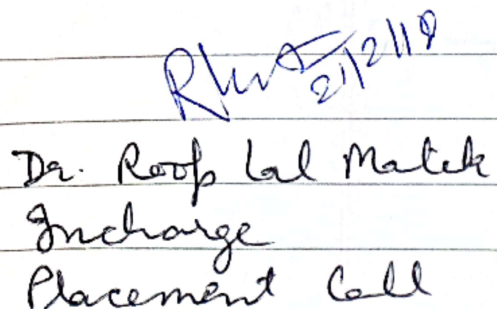 21/2/18
Dr. Roop Lal Malik
Incharge
Placement Cell